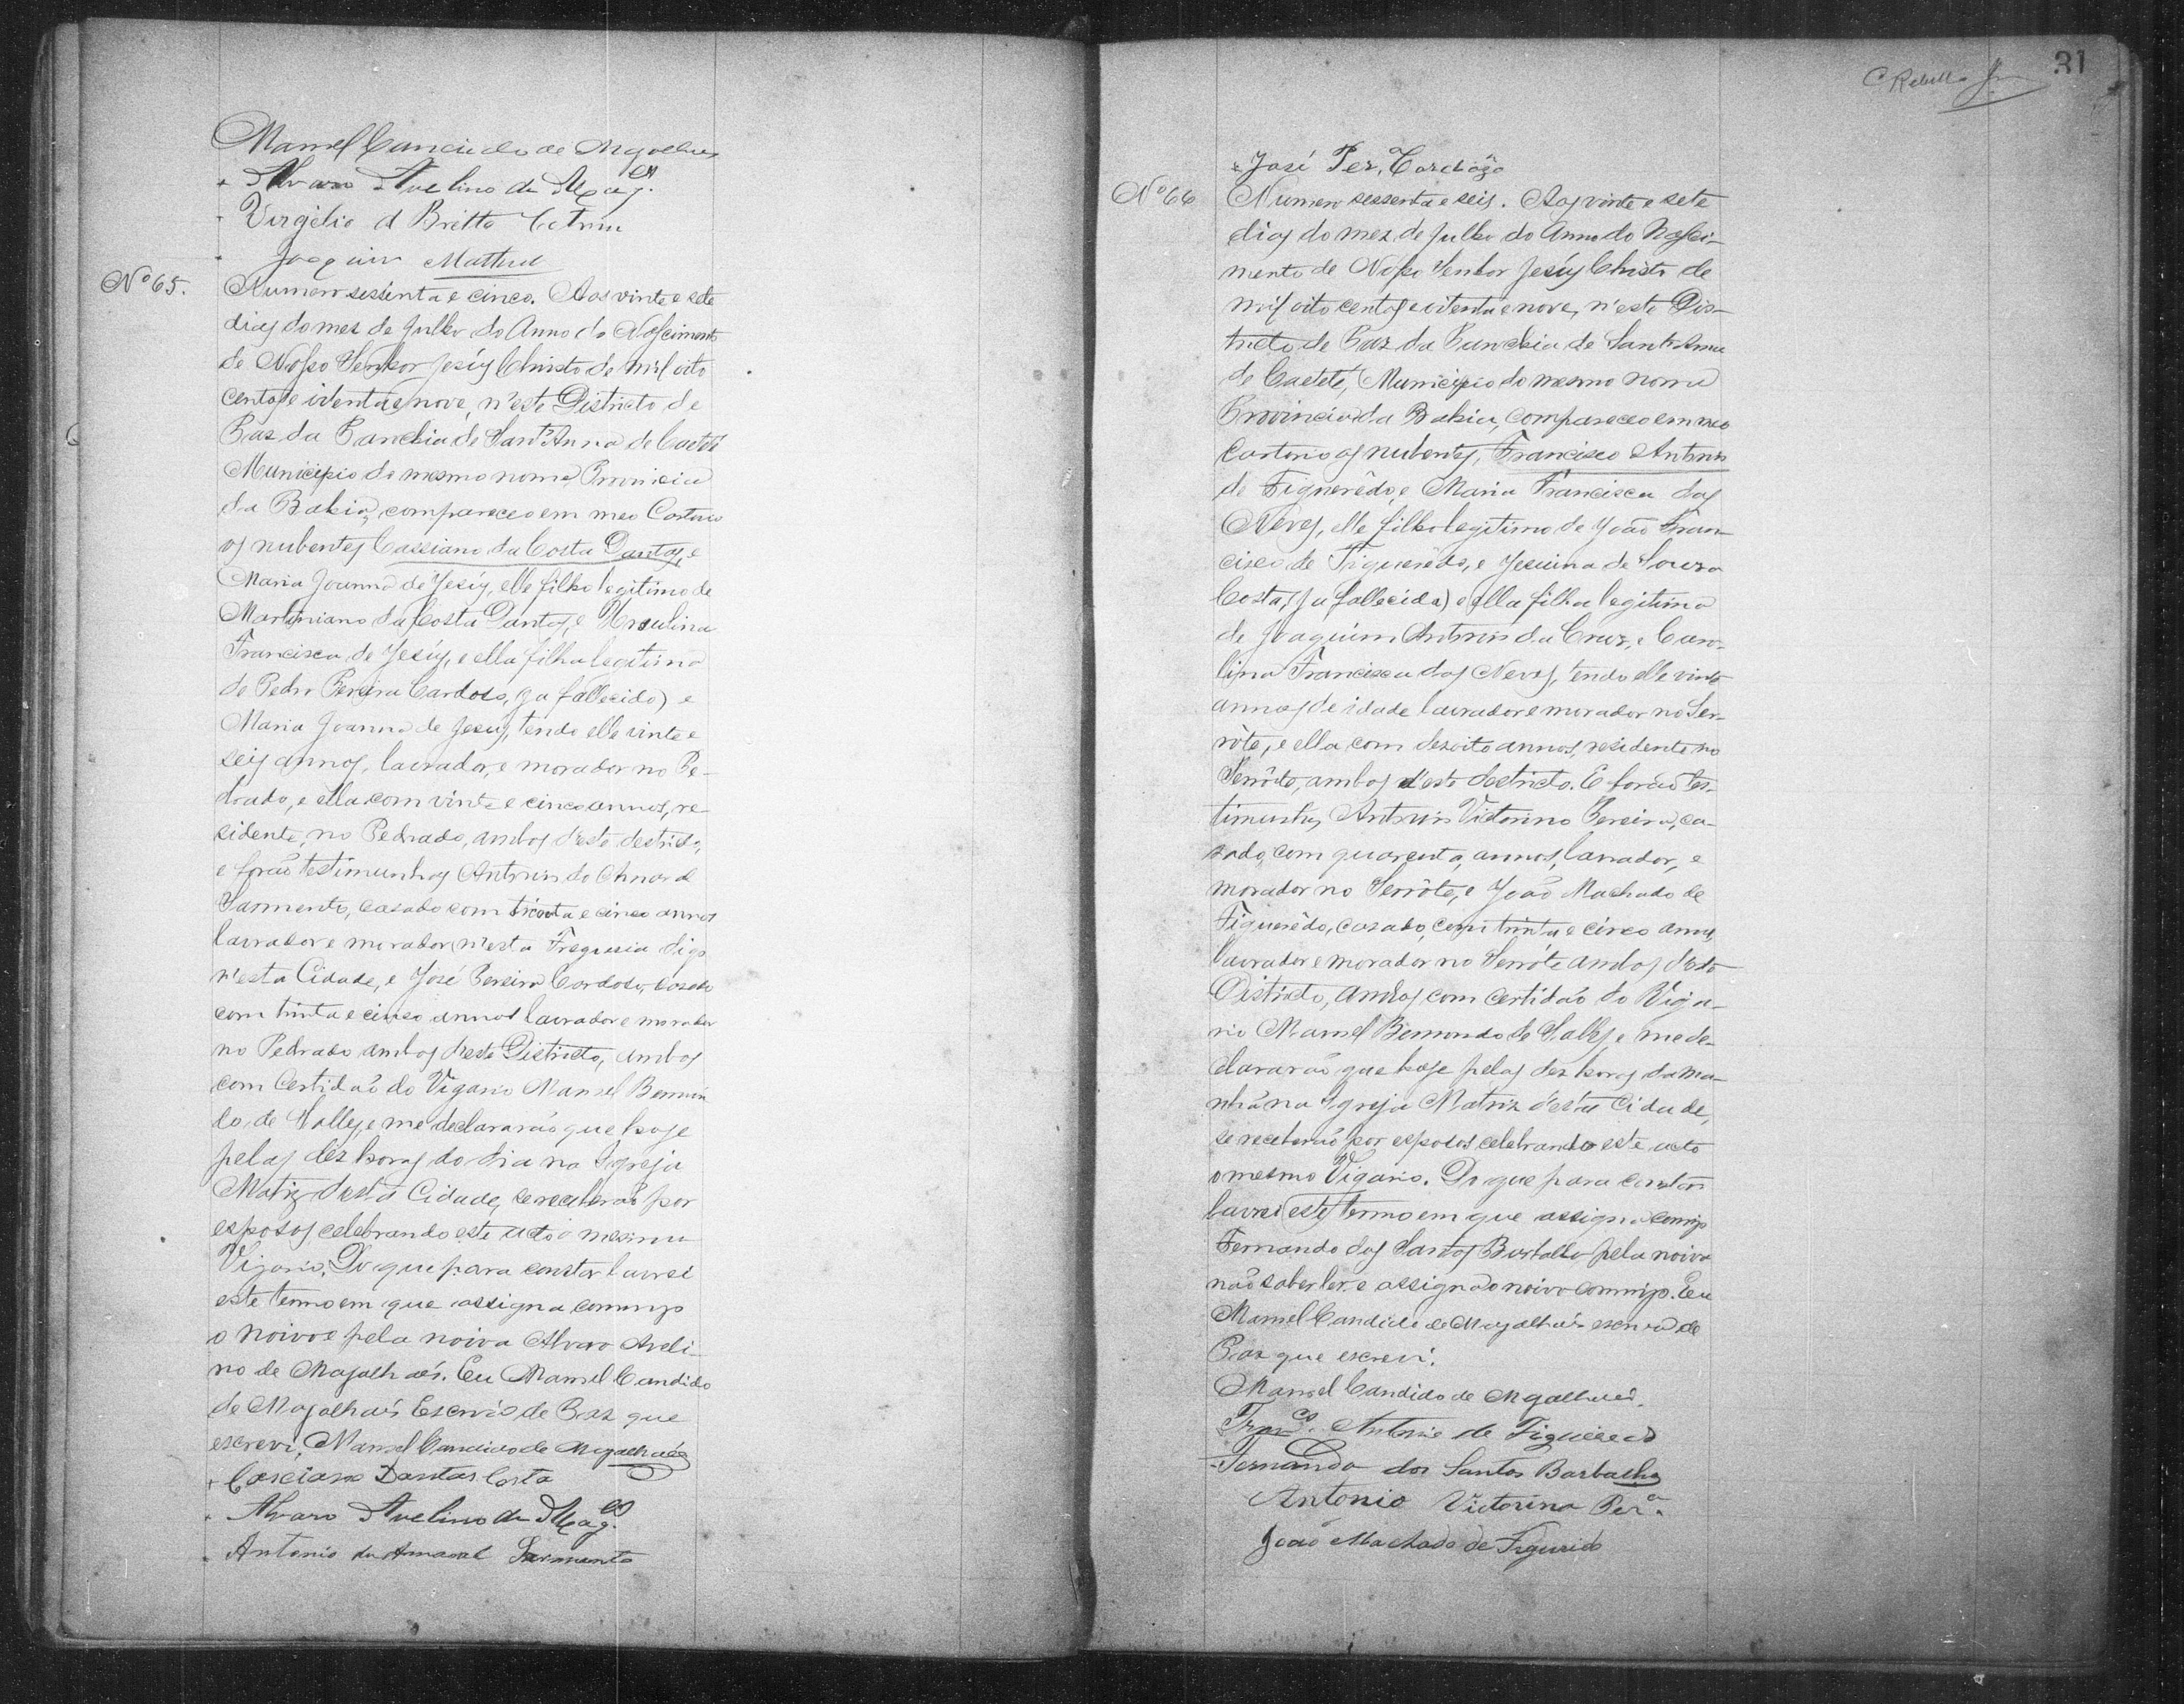 Manoel Candido de Magalhães
Alvaro Avelino de Mag.es
Virgilio d Britto Cotrim
Joaquim
Nº 65.
Numero sessenta e cinco. Aos vinte e sete
dias do mez de Julho do Anno do Nascimento
de Nosso Senhor Jesus Christo de mil oito
centos e oitenta e nove, n'este Districto de
Paz da Parochia de Sant'Anna de Caeteté
Municipio do mesmo nome, Provincia
da Bahia, compareceo em meo Cartorio
os nubentes Cassiano da Costa Dantas, e
Maria Joanna de Jesus, elle filho legitimo de
Martiniano da Costa Dantas, e Ursulina
Francisca de Jesus, e ella filha legitima
de Pedro Pereira Cardoso, (ja fallecido) e
Maria Joanna de Jesus, tendo elle vinte e
seis annos, lavrador, e morador no Pe-
drado, e ella com vinte e cinco annos, re-
sidente, no Pedrado, ambos d'este destricto,
e forão testimunhas Antonio do Amaral
Sarmento, casado com trinta e cinco annos
lavrador e morador n'esta Freguesia digo
n'esta Cidade, e José Pereira Cardoso, casado
com trinta e cinco annos lavrador e morador
no Pedrado ambos d'este Districto, ambos
com Certidão do Vigario Manoel Benvin
do, de Salles, e me declararão que hoje
pelas dez horas do dia na Igreja
Matriz desta Cidade, se receberão por
esposos celebrando este acto o mesmo
Vigario. Do que para constar lavrei
este termo em que assigna commigo
o noivo e pela noiva Alvaro Aveli-
no de Magalhães. Eu Manoel Candido
de Magalhães Escrivão de Paz que
escrevi. Manoel Candido de Magalhães
Casciano Dantas Costa
Alvaro Avelino de Mag.es
Antonio do Amaral Sarmento
31
C Rebello Jr
José Per. Cardozo
Nº 66
Numero sessenta e seis. Aos vinte e sete
dias do mez de Julho do Anno do Nasci-
mento de Nosso Senhor Jesus Christo de
mil oito centos e oitenta e nove, n'este Dis-
tricto de Paz da Parochia de Sant'Anna
de Caeteté, Municipio do mesmo nome
Provincia da Bahia, compareceo em meo
Cartorio os nubentes, Francisco Antonio
de Figuerêdo, e Maria Francisca das
Neves, elle filho legitimo de João Fran-
cisco de Figuerêdo, e Jesuina de Souza
Costa, (ja fallecida) e ella filha legitima
de Joaquim Antonio da Cruz, e Caro-
lina Francisca das Neves, tendo elle vinte
annos de idade lavrador e morador no Ser-
rôte, e ella com dezoito annos, residente no
Serrôte, ambos d'este destricto. E forão tes-
timunhas Antonio Victorino Pereira, ca-
sado, com quarenta, annos, lavrador, e
morador no Serrôte, e João Machado de
Figuerêdo, casado, com trinta e cinco annos,
lavrador e morador no Serrôte ambos d'este
Districto, ambos com certidão do Viga-
rio Manoel Benvindo de Salles, e me de-
clararão que hoje pelas dez horas da ma-
nhã na Igreja Matriz d'esta Cidade,
se receberão por esposos celebrando este acto
o mesmo Vigario. Do que para constar
lavrei este termo em que assigna comigo
Fernando dos Santos Barbalho pela noiva
não saber ler e assigna o noivo commigo. Eu
Manoel Candido de Magalhães escrivão de
Paz que escrevi.
Manoel Candido de Magalhães.
Fran.co Antonio de Figueiredo
Fernando dos Santos Barbalho
Antonio Victorino Per.a
João Machado de Figueirido